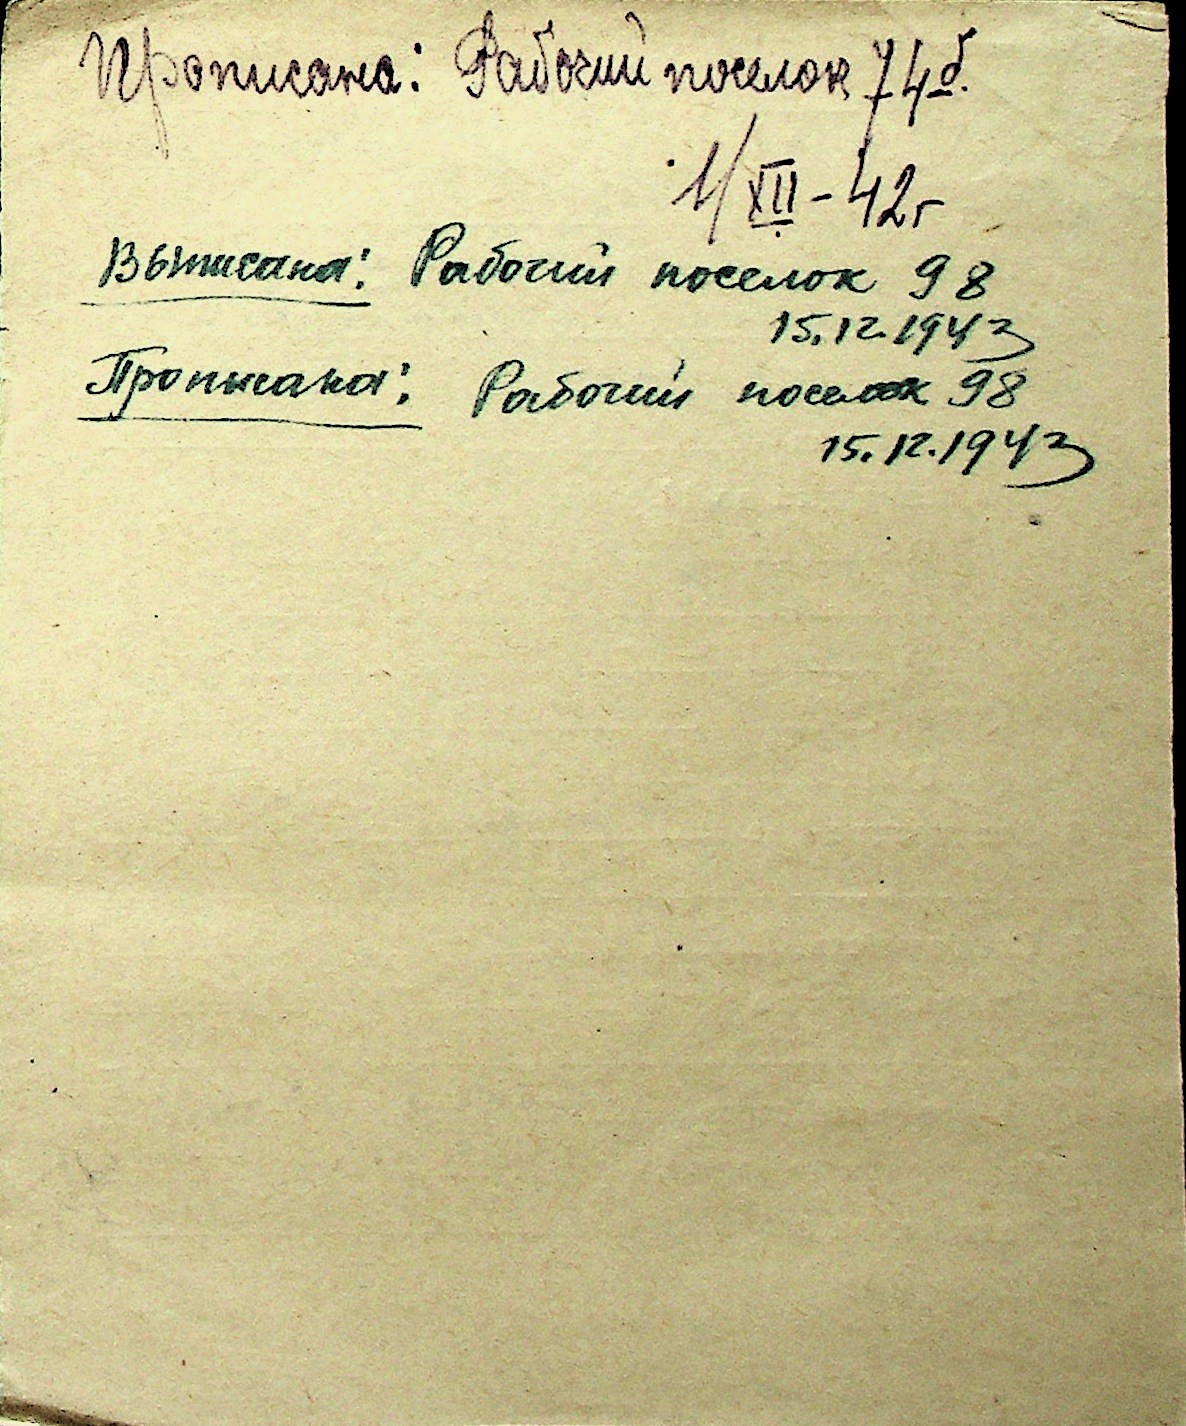 Прописана: Рабочий поселок 74б.
1/XII-42г
Выписана: Рабочий поселок 98
15.12.1943
Прописана: Рабочий поселок 98
15.12.1943